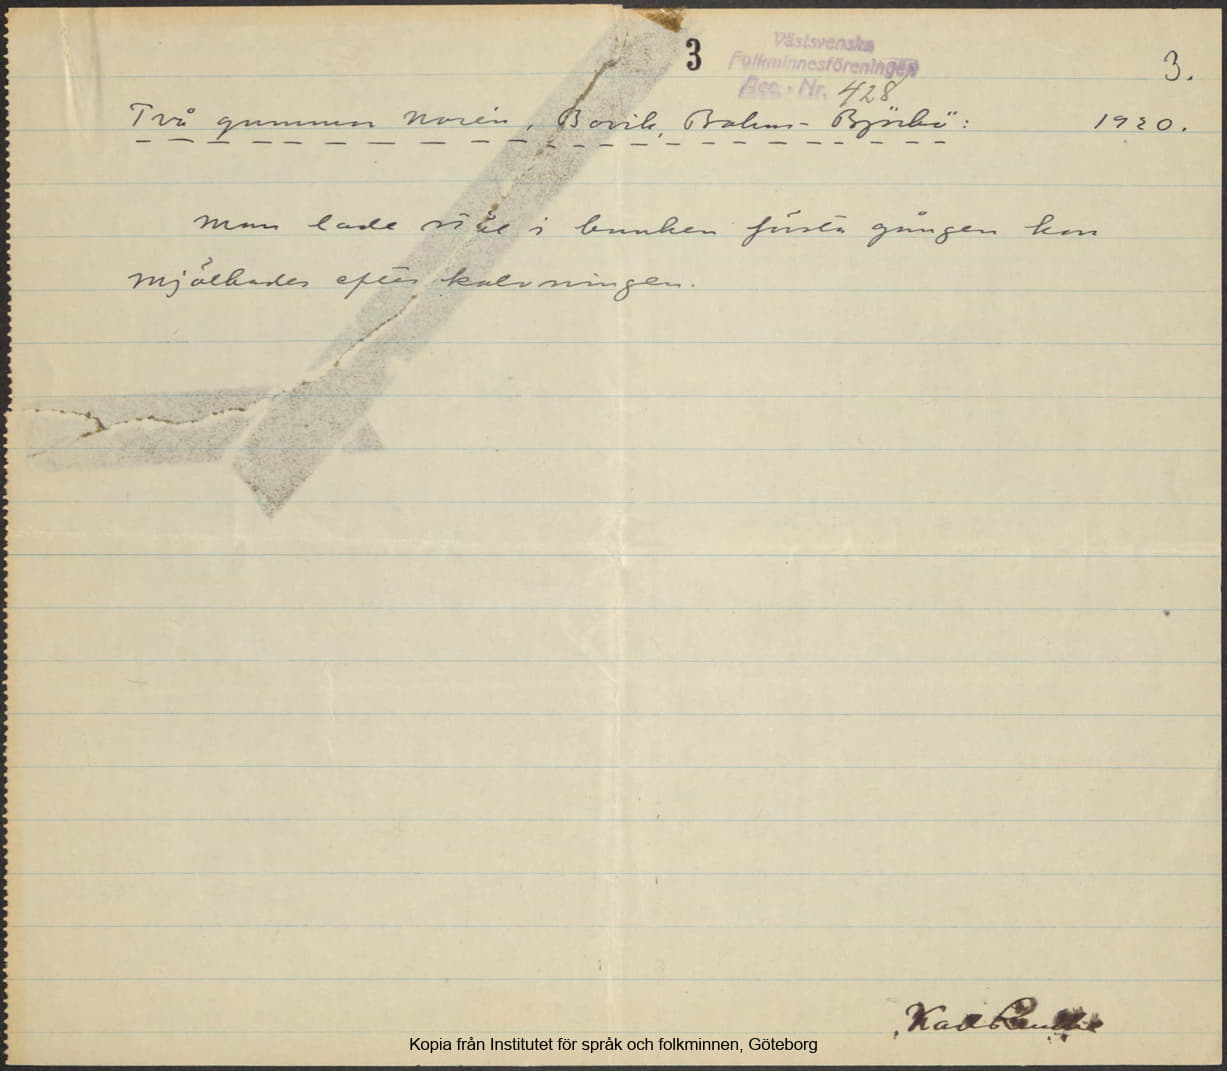 3
Västsvenska
Folkminnesföreningen
Acc. - Nr. 428
3.
Två gummor Norén, Bovik, Bohus-Björkö: 1920.
Man lade stål i bunken första gången kon
mjölkades efter kalvningen.
Kopia från Institutet för språk och folkminnen, Göteborg